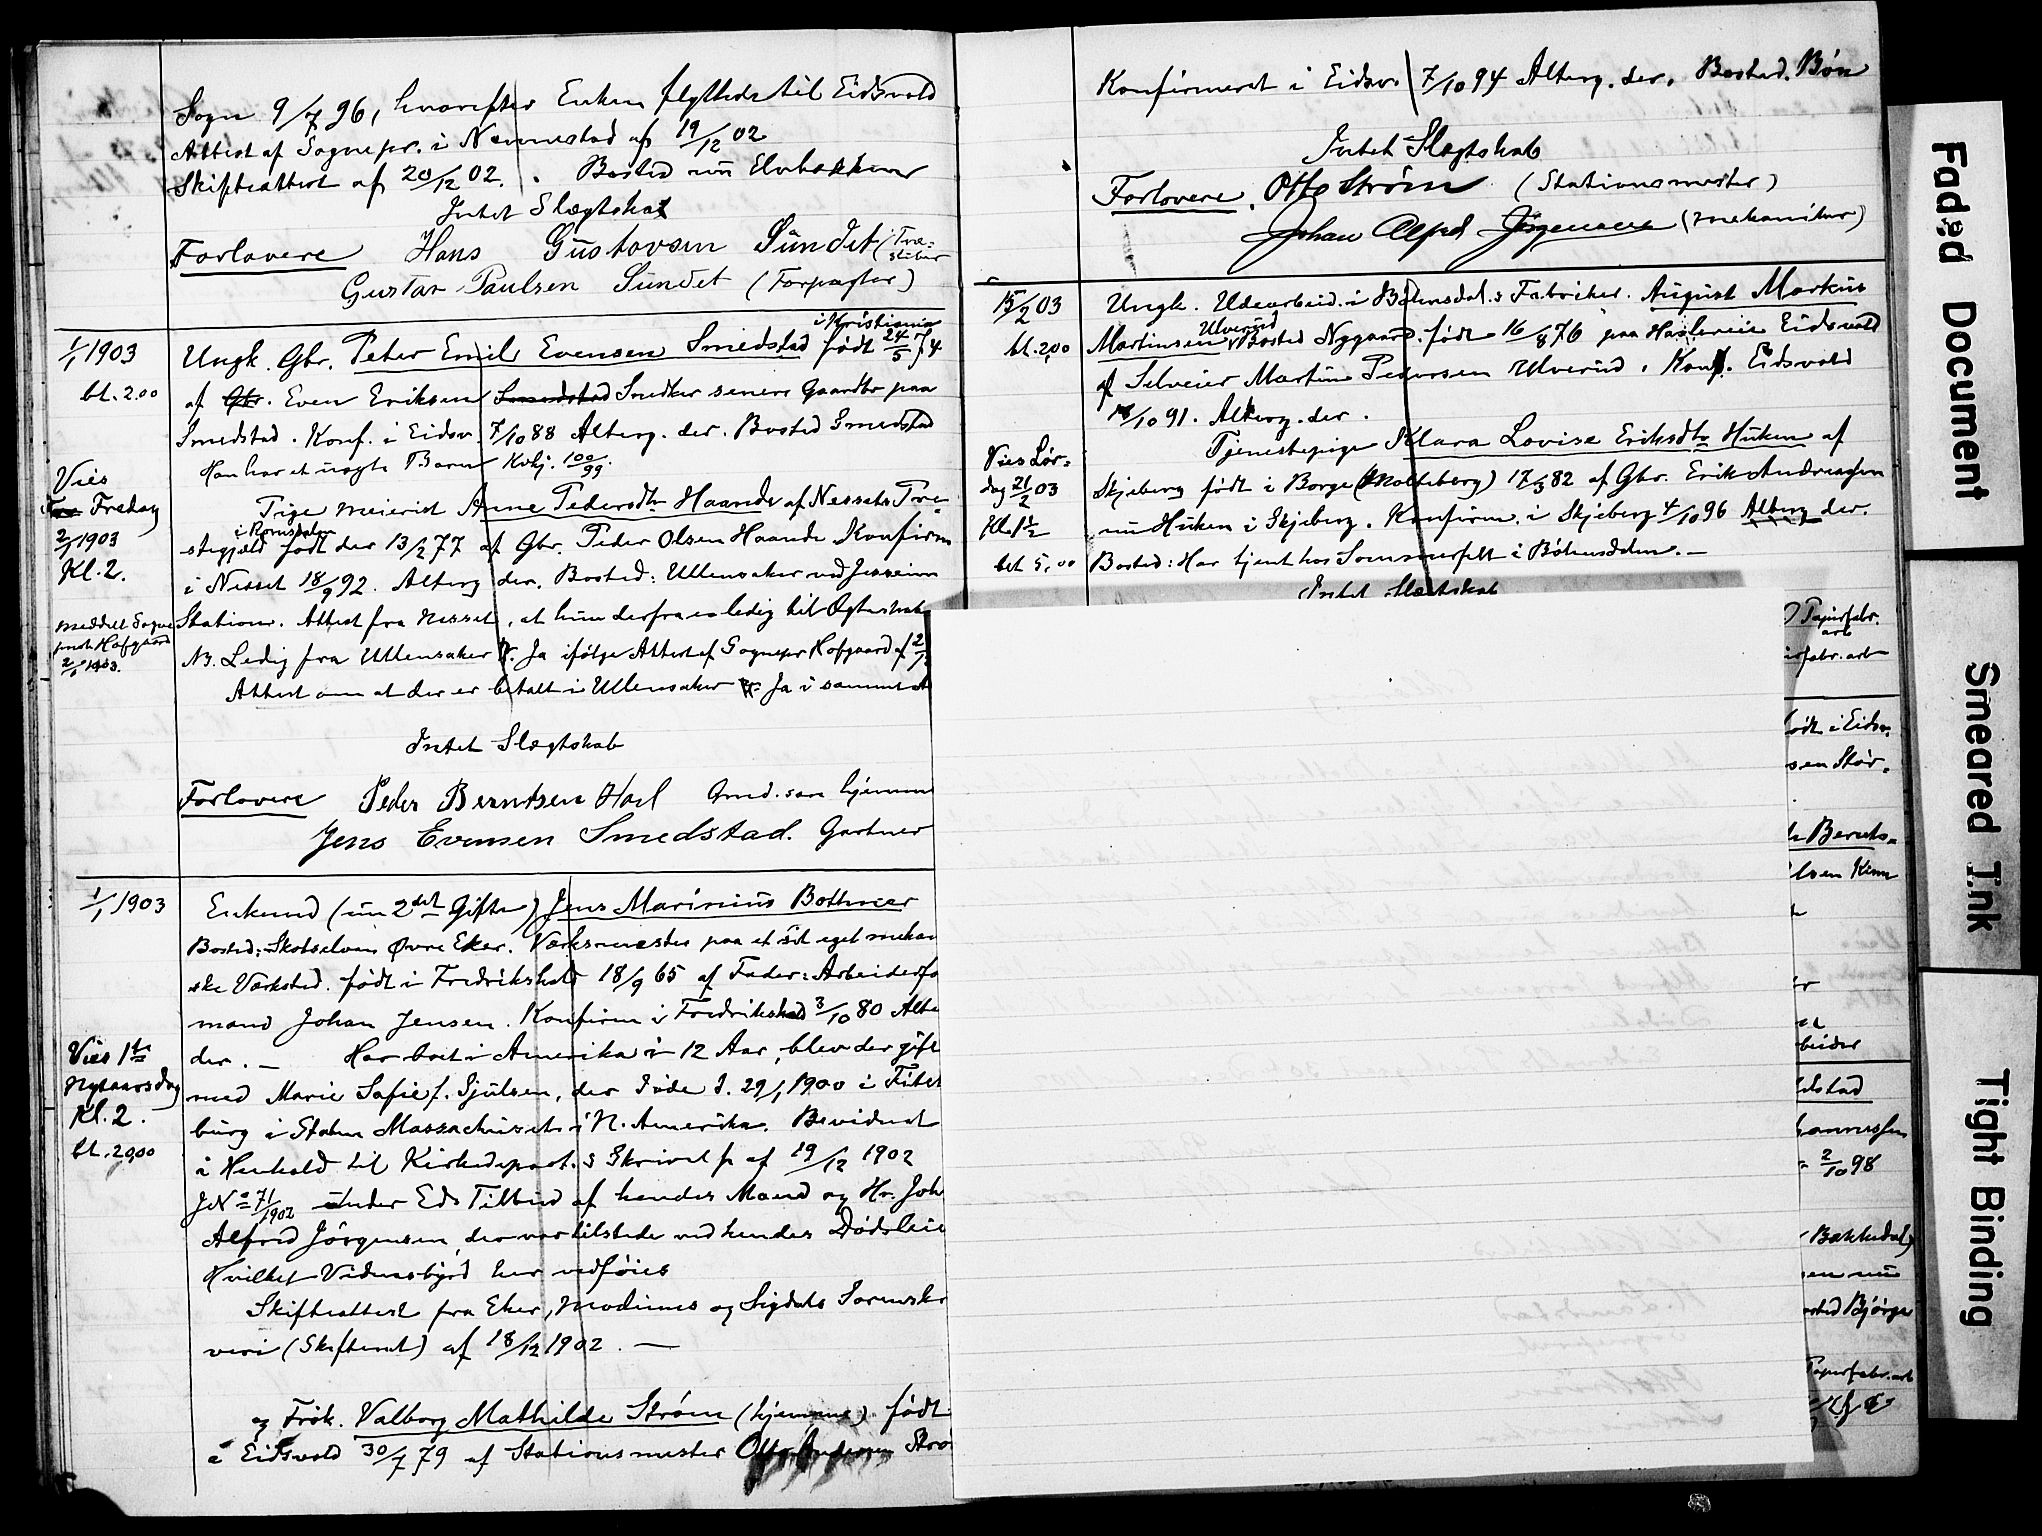 Sogn 9/7 96, hvorefter Enken flyttede til Eidsvold
Attest af Sognepr. i Nannestad af 19/12 02
Skifteattest af 20/12 02. Bosted
Intet Slægtskab
Forlovere Hans Gustavsen Sundet
Gustav Paulsen Sundet (Forpagter)
1/1 1903
bt. 2.00
i Kristiania
Ungk. Gbr. Peter Emil Evensen Smedstad født 24/5 74
af Gbr. Even Eriksen Smedstad Snedker senere Gaardbr paa
Smedstad. Konf. i Eidsv. 7/10 88 Alterg. der. Bosted Smedstad
Han har et uægte Barn Kvbj. 100/99.
Vies
Fredag
2/1 1903
Kl. 2.
Pige meierist Anne Pedersdtr Haande af Nessets Præ-
i Romsdalen
stegjæld født der 13/2 77 af Gbr. Peder Olsen Haande Konfirm
i Nesset 18/9 92. Alterg der. Bosted: Ullensaker ved Jessheim
Station. Attest fra Nesset, at hun derfra er ledig til Ægteskab
meddelt Sogne
prest Hofgaard
2/1 1903.
NB. Ledig fra Ullensaker Ja ifølge Attest af Sognepr Hofgaard af 2/1
Attest om at der er betalt i Ullensaker Ja i samme at
Intet Slægtskab
Forlovere Peder Berntsen Hol Gmd. søn hjemme
Jens Evensen Smedstad. Gartner
1/1 1903
Enkemd (nu 2det Gifte) Jens Marinius Bothner
Bosted: Skotselven Øvre Eker. Værksmester paa et sit eget mekan
ske Værksted. født i Fredrikshald 18/9 65 af Fader: Arbeiderfo
mand Johan Jensen. Konfirm i Fredrikshald 3/10 80 Alte
der. — Har boet i Amerika i 12 Aar, blev der gift
Vies 1ste
Nytaarsdag
Kl. 2.
bt. 20,00
med Marie Sofie f. Sjulsen, der døde d. 29/1 1900 i Fitch
burg i Staten Massachusets i N. Amerika. Bevidnet
i Henhold til Kirkedepart.s Skrivelse af 19/12 1902
JNo 71/1902 under Eds Tilbud af hendes Mand og Hr. Joh
Alfred Jörgensen, der var tilstede ved hendes Dødsleie
Hvilket Vidnesbyrd her vedføies
Skifteattest fra Eker, Modums og Sigdals Sorenskr
veri (Skifteret) af 18/12 1902. —
og Frøk. Valborg Mathilde Strøm (hjemme) født
i Eidsvold 30/7 79 af Stationsmester Otto Strø
Konfirmeret i Eidsv. 7/10 94 Alterg. der. Bosted. Bøn
Intet Slægtskab
Forlovere. Otto Strøm (Stationsmester)
Johan Alfred Jörgensen (mekaniker)
15/2 03
bt. 2,00
Ungk. Udearbeid. i Bøhnsdal.s Fabriker. August Markus
Ulverud
Martinsen Bosted Nygaard. født 16/8 76 paa Eidsvold
af Selveier Martin Pedersen Ulverud. Konf. Eidsvold
18/10 91. Alterg. der.
Vies Lør-
dag 21/2 03
Kl. 1½
bet 5,00
Tjenestepige Klara Lovise Eriksdtr Huken af
Skjeberg født i Borge (Molteberg) 17/3 82 af Gbr. Erik Andreasen
nu Huken i Skjeberg. Konfirm. i Skjeberg 4/10 96 Alterg der.
Bosted: Har tjent hos Sommerfelt i Bøhnsdalen. —
Intet Slægtskab
Papirfabr.
arb
fabr. arb
født i Eidsv.
sen Stør-
Bernts-
lsen Kinn
beider
dstad
hannessen
2/10 98
Bakkedal)
sen nu
osted Bjørge
Papirfabr. arb
Faded Document
Smeared Ink
Tight Binding